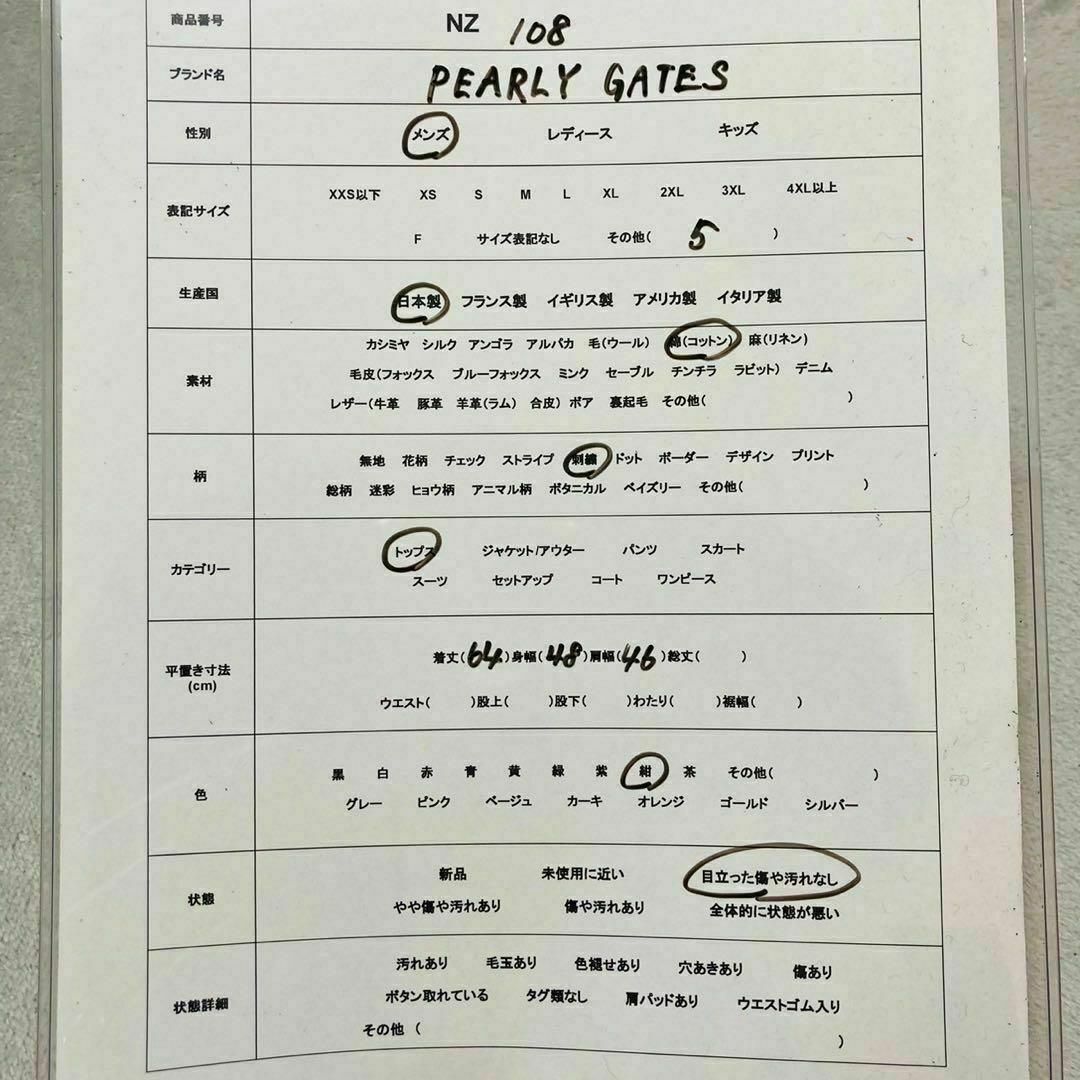 商品番号 NZ 108
ブランド名 PEARLY GATES
性別 メンズ レディース キッズ
XXS以下 XS S M L XL 2XL 3XL 4XL以上
表記サイズ
F サイズ表記なし その他( 5 )
生産国 日本製 フランス製 イギリス製 アメリカ製 イタリア製
カシミヤ シルク アンゴラ アルパカ 毛(ウール) 綿(コットン) 麻(リネン)
素材 毛皮(フォックス ブルーフォックス ミンク セーブル チンチラ ラビット) デニム
レザー(牛革 豚革 羊革(ラム) 合皮) ボア 裏起毛 その他( )
柄 無地 花柄 チェック ストライプ 刺繍 ドット ボーダー デザイン プリント
総柄 迷彩 ヒョウ柄 アニマル柄 ボタニカル ペイズリー その他( )
カテゴリー トップス ジャケット/アウター パンツ スカート
スーツ セットアップ コート ワンピース
着丈(64)身幅(48)肩幅(46)総丈( )
平置き寸法
(cm)
ウエスト( )股上( )股下( )わたり( )裾幅( )
色 黒 白 赤 青 黄 緑 紫 紺 茶 その他( )
グレー ピンク ベージュ カーキ オレンジ ゴールド シルバー
状態 新品 未使用に近い 目立った傷や汚れなし
やや傷や汚れあり 傷や汚れあり 全体的に状態が悪い
汚れあり 毛玉あり 色褪せあり 穴あきあり 傷あり
状態詳細 ボタン取れている タグ類なし 肩パッドあり ウエストゴム入り
その他 ( )